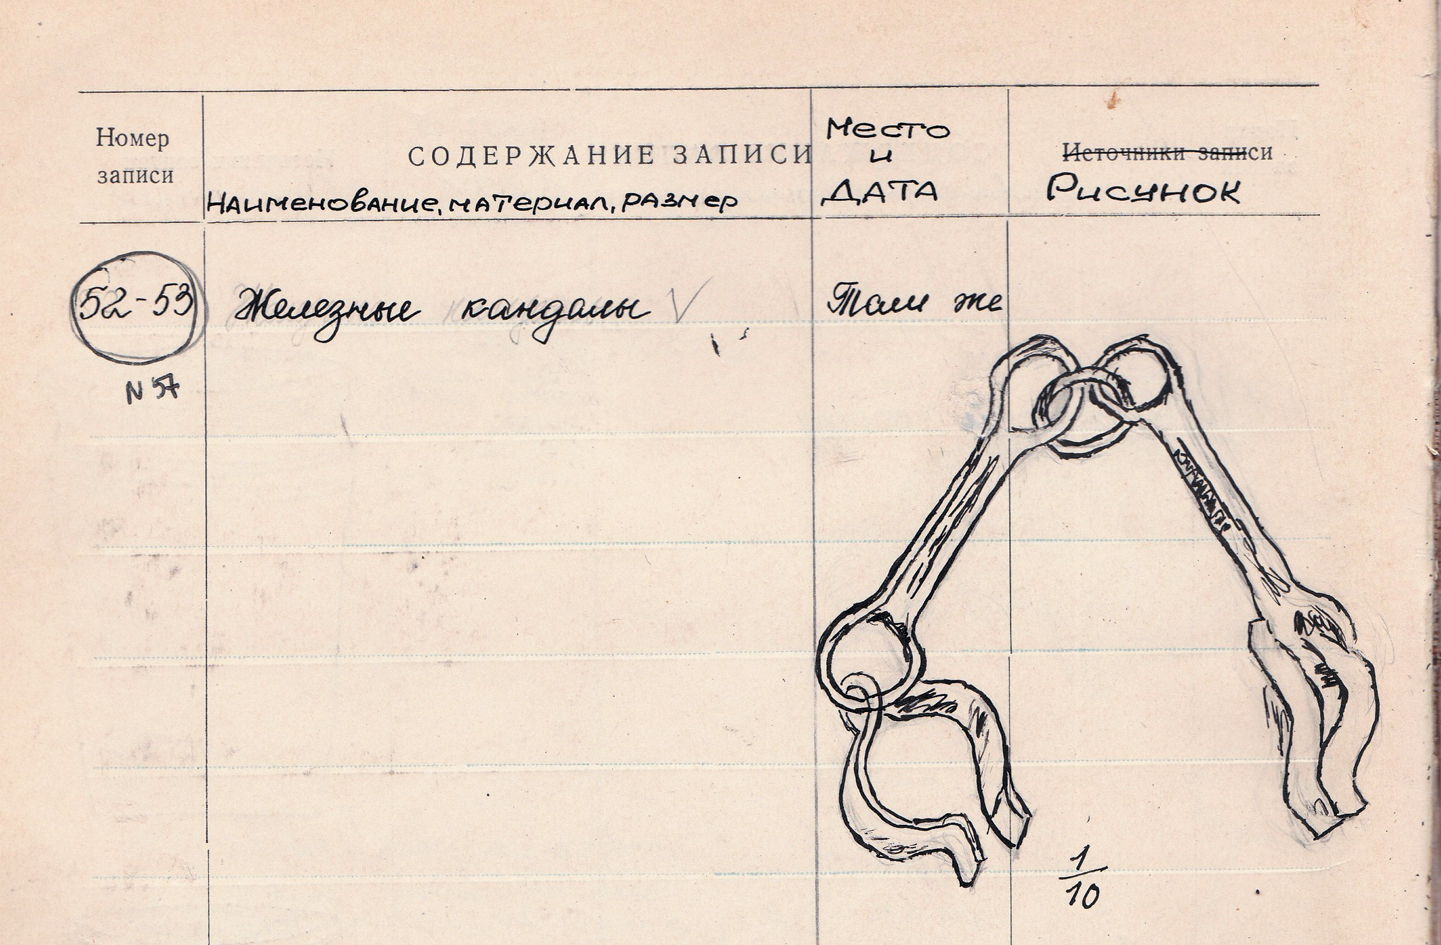 Номер
записи
СОДЕРЖАНИЕ ЗАПИСИ
Наименование, материал, размер
Место
и
ДАТА
Источники записи
Рисунок
52-53
Железные кандалы
Там же
N 57
1
10